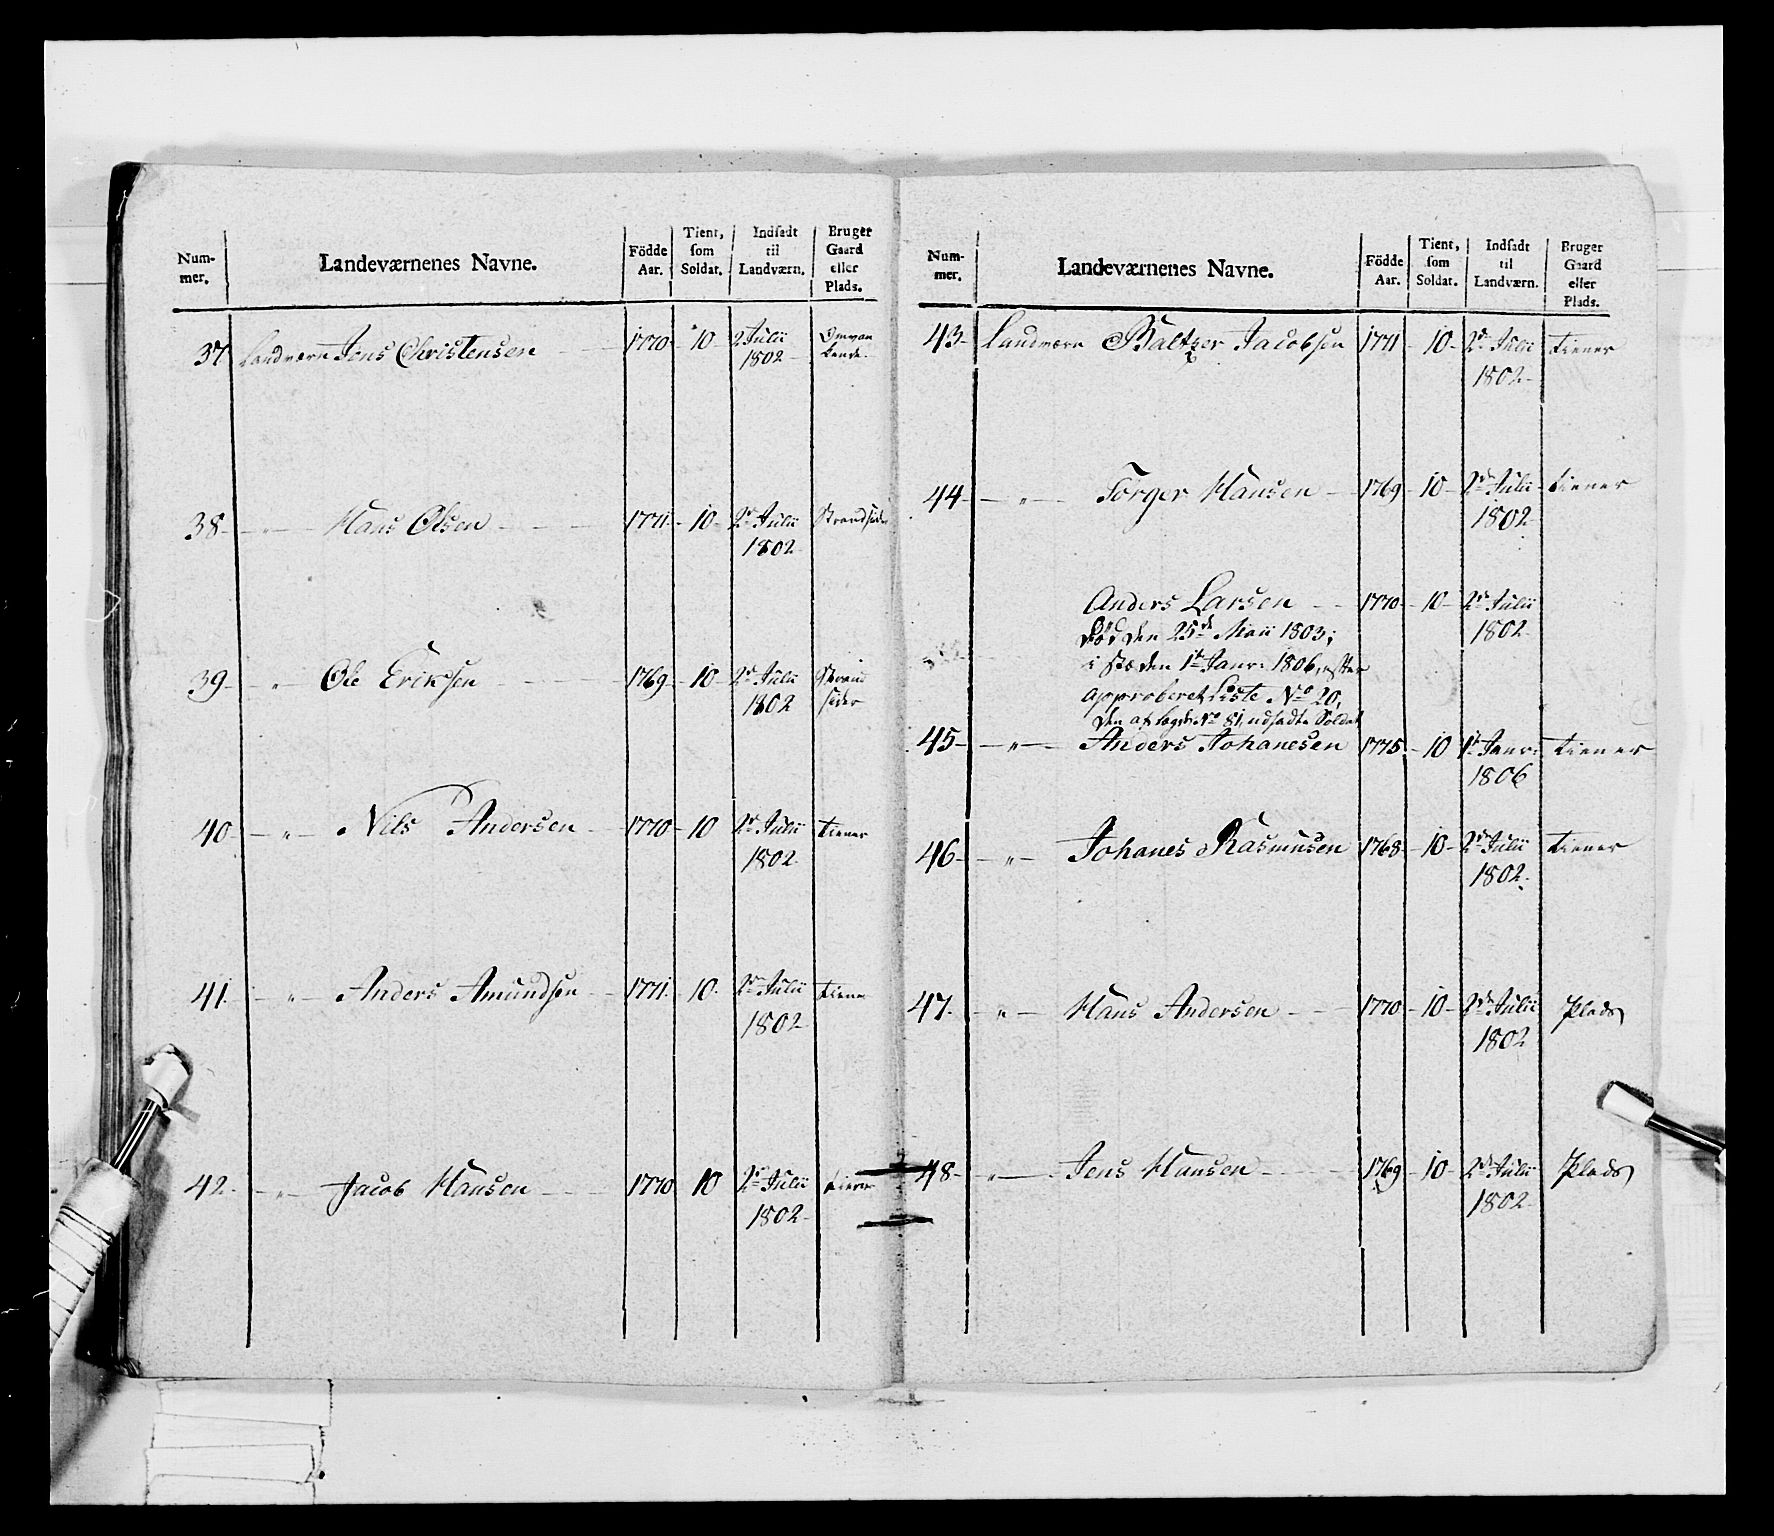 Num-
mer.
Landeværnenes Navne.
Födde
Aar.
Tient,
som
Soldat.
Indsadt
til
Landværn.
Bruger
Gaard
eller
Plads.
37 Landværn Jens Christensen 1770 10 2 Julii
1802
Omvan
kende.
38 — " — Hans Olsen 1771 10 2de Julii
1802
Strandsider
39 — " — Ole Eriksen 1769 10 2de Julii
1802
Strand
sider
40 — " — Nils Andersen 1770 10 2de Julii
1802
tiener
41 — " — Anders Amundsen 1771 10 2de Julii
1802
tiener
42 — " — Jacob Hansen 1770 10 2de Julii
1802
tiener
Num-
mer.
Landeværnenes Navne.
Födde
Aar.
Tient,
som
Soldat.
Indsadt
til
Landværn.
Bruger
Gaard
eller
Plads.
43 Landværn Baltzer Jacobsen 1771 10 2de Julii tiener
1802
44 — " — Törger Hansen 1769 10 2de Julii tiener
1802
Anders Larsen 1770 10 2de Julii
1802
död den 25de Maii 1803;
i stæden 1te Janr: 1806, efter
approberet Liste No 20,
den af Lægde No 81, udsadte Soldat
45 — " — Anders Johanesen 1775 10 1te Janr: tiener
1806
46 — " — Johanes Rasmusen 1768 10 2de Julii tiener
1802
47 — " — Hans Andersen 1770 10 2de Julii Plads
1802
48 — " — Jens Hansen 1769 10 2de Julii Plads
1802